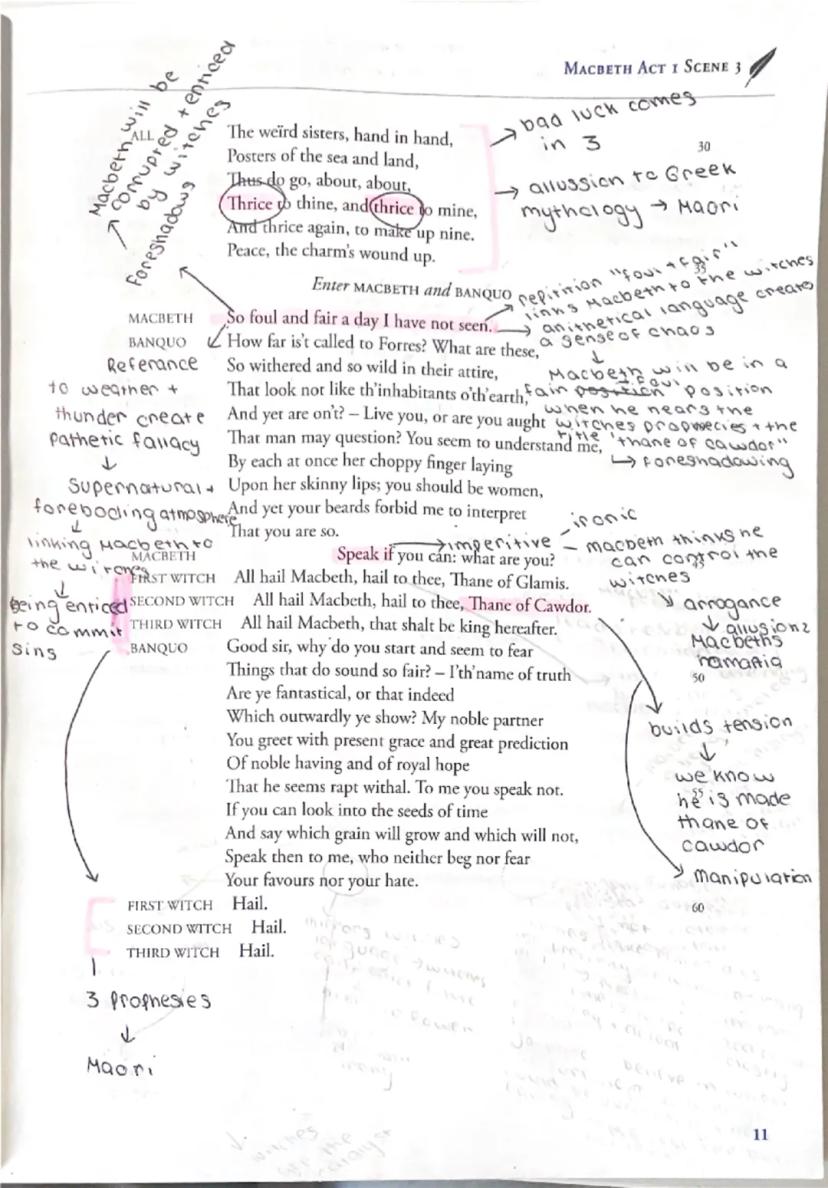 MACBETH ACT 1 SCENE 3
Macbeth will be
corrupted + enticed
by witches
Foreshadows
ALL The weïrd sisters, hand in hand,
Posters of the sea and land,
Thus do go, about, about,
Thrice to thine, and thrice to mine,
And thrice again, to make up nine.
Peace, the charm's wound up.
bad luck comes
in 3
30
allussion to Greek
mythology → Maori
Enter MACBETH and BANQUO
MACBETH So foul and fair a day I have not seen.
BANQUO How far is't called to Forres? What are these,
So withered and so wild in their attire,
That look not like th'inhabitants o'th'earth,
And yet are on't? – Live you, or are you aught
That man may question? You seem to understand me,
By each at once her choppy finger laying
Upon her skinny lips; you should be women,
And yet your beards forbid me to interpret
That you are so.
repitition "foul + fair"
35
links Macbeth to the witches
anithetical language creates
a sense of chaos
Macbeth will be in a
fair position foul position
when he nears the
witches prophecies + the
title "thane of cawdor"
→ foreshadowing
Referance
to weather +
thunder create
Pathetic fallacy
Supernatural +
foreboding atmosphere
linking Macbeth to
the witches
being enticed
to commit
sins
MACBETH Speak if you can: what are you?
FIRST WITCH All hail Macbeth, hail to thee, Thane of Glamis.
SECOND WITCH All hail Macbeth, hail to thee, Thane of Cawdor.
THIRD WITCH All hail Macbeth, that shalt be king hereafter.
BANQUO Good sir, why do you start and seem to fear
Things that do sound so fair? – I'th'name of truth
Are ye fantastical, or that indeed
Which outwardly ye show? My noble partner
You greet with present grace and great prediction
Of noble having and of royal hope
That he seems rapt withal. To me you speak not.
If you can look into the seeds of time
And say which grain will grow and which will not,
Speak then to me, who neither beg nor fear
Your favours nor your hate.
→ imperitive
- ironic
- macbeth thinks he
can control the
witches
arrogance
allusion 2
Macbeths
hamartia
50
builds tension
we know
55
he is made
thane of
cawdor
manipulation
60
FIRST WITCH Hail.
SECOND WITCH Hail.
THIRD WITCH Hail.
3 Prophesies
Maori
11